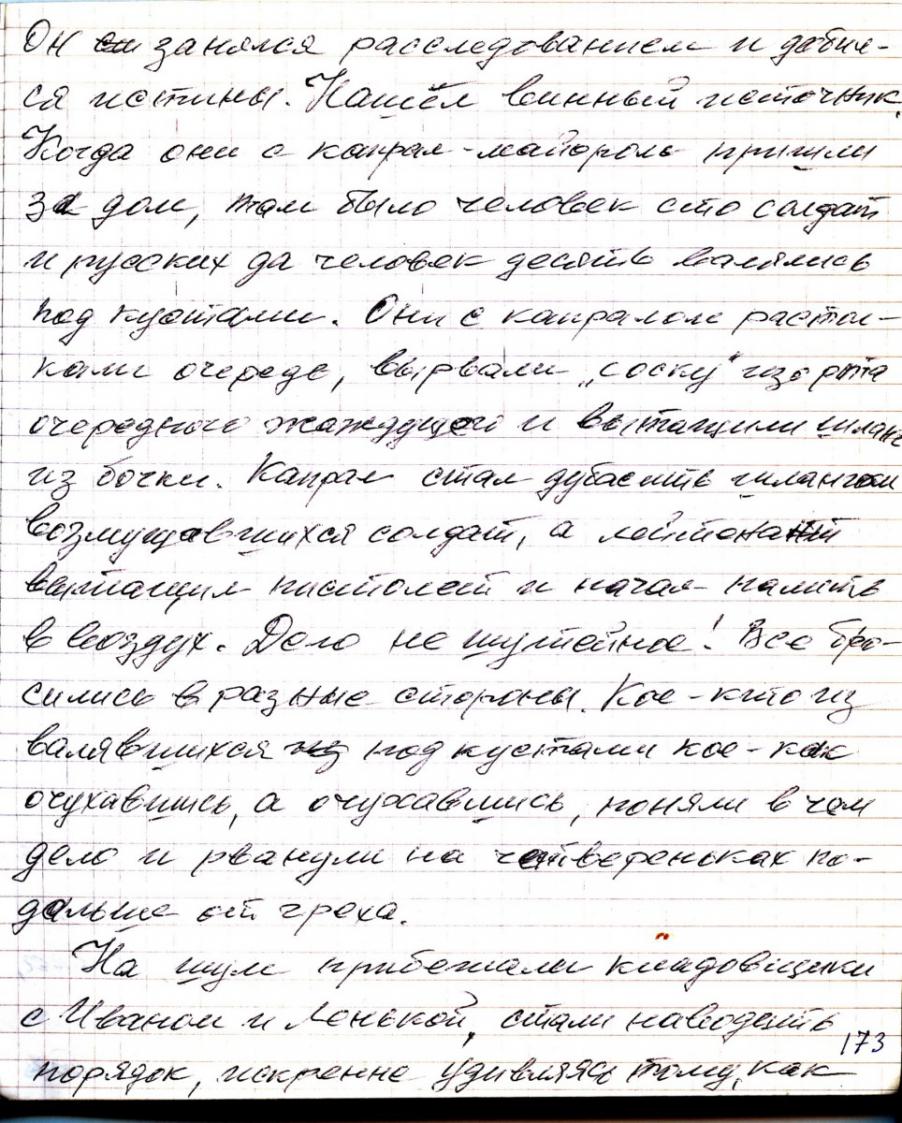 Он занялся расследованием и добил-
ся истины. Нашёл винный источник.
Когда они с капрал-майором пришли
за дом, там было человек сто солдат
и русских да человек десять валялись
под кустами. Они с капралом растол-
кали очередь, вырвали „соску" изо рта
очередного жаждущего и вытащили шланг
из бочки. Капрал стал дубасить шлангом
возмущавшихся солдат, а лейтенант
вытащил пистолет и начал палить
в воздух. Дело не шутейное! Все бро-
сились в разные стороны. Кое-кто из
валявшихся под кустами кое-как
очухавшись, а очухавшись, поняли в чем
дело и рванули на четвереньках по-
дальше от греха.
На шум прибежали кладовщики
с Иваном и Лёнькой, стали наводить
173
порядок, искренне удивляясь тому, как